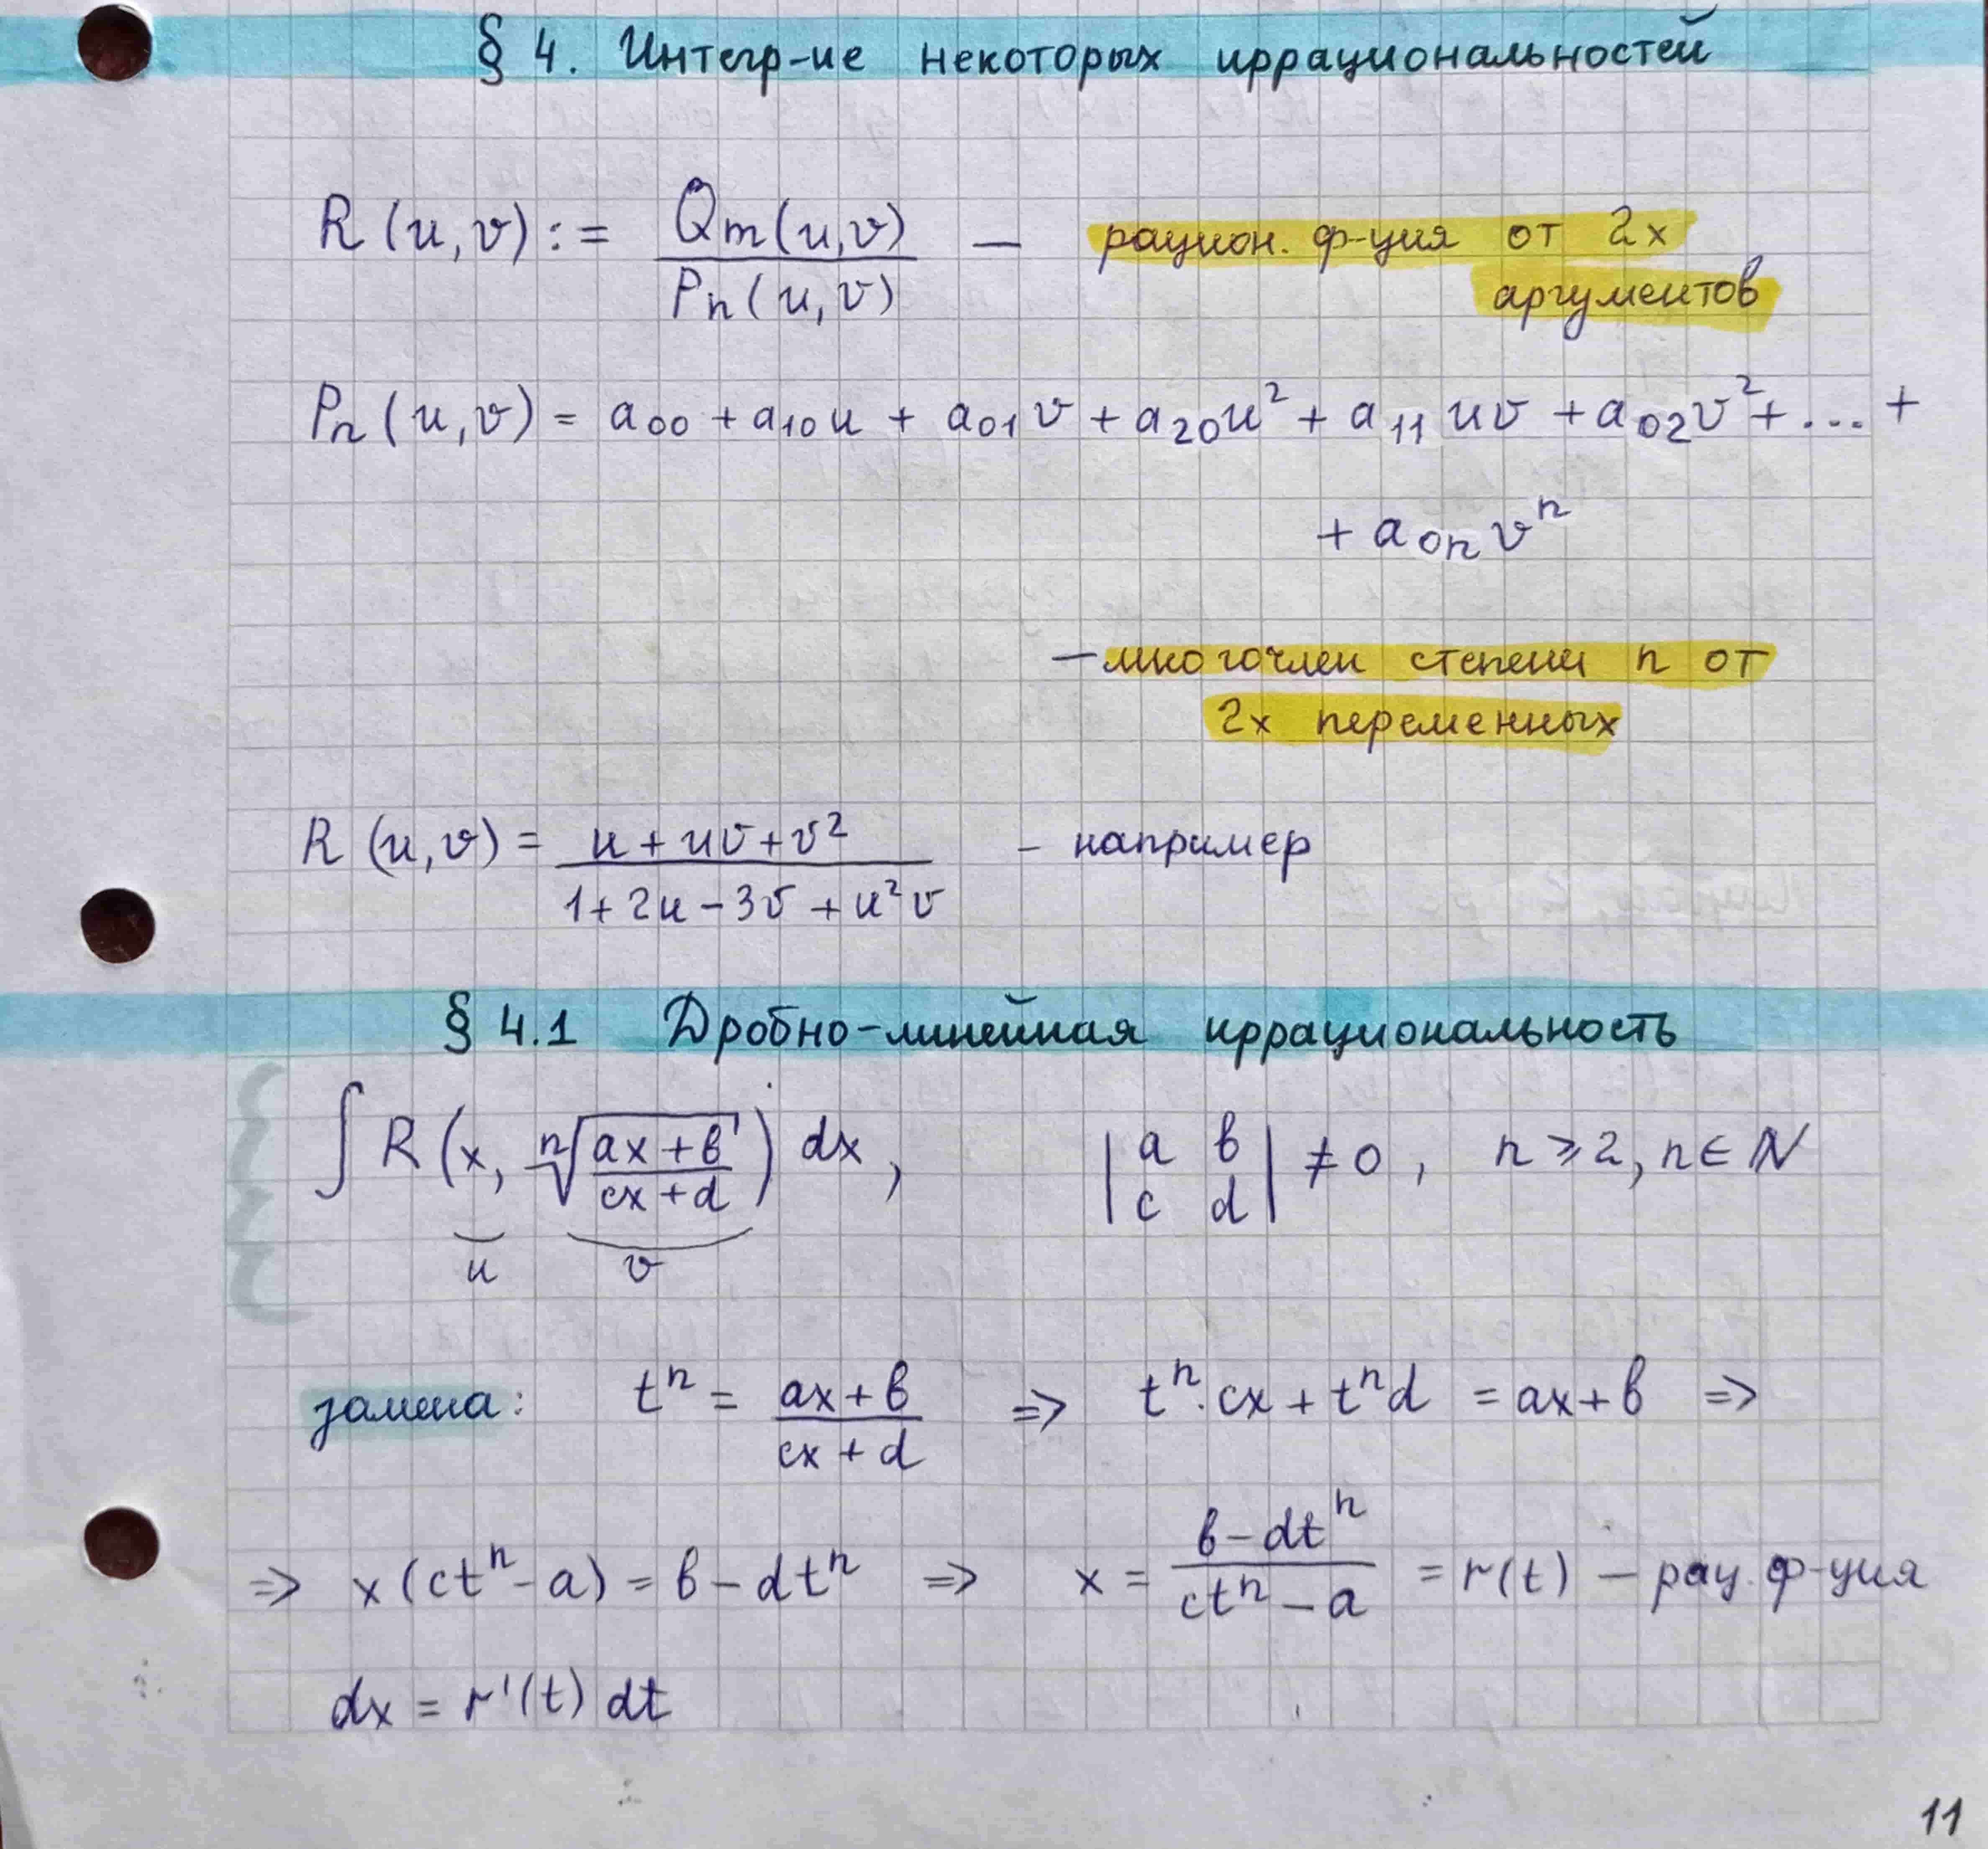 § 4. Интегр-ие некоторых иррациональностей
R(u,v) := Qm(u,v) / Pn(u,v) — рацион. ф-ция от 2х
аргументов
Pn(u,v) = a₀₀ + a₁₀u + a₀₁v + a₂₀u² + a₁₁uv + a₀₂v² + ... +
+ a₀ₙvⁿ
— многочлен степени n от
2х переменных
R(u,v) = (u + uv + v²) / (1 + 2u - 3v + u²v) - например
§ 4.1 Дробно-линейная иррациональность
∫ R(x, ⁿ√((ax+b)/(cx+d))) dx, |a b; c d| ≠ 0, n ⩾ 2, n ∈ ℕ
u v
замена: tⁿ = (ax+b)/(cx+d) => tⁿ·cx + tⁿd = ax+b =>
=> x(ctⁿ - a) = b - dtⁿ => x = (b - dtⁿ)/(ctⁿ - a) = r(t) — рац. ф-ция
dx = r'(t) dt
11